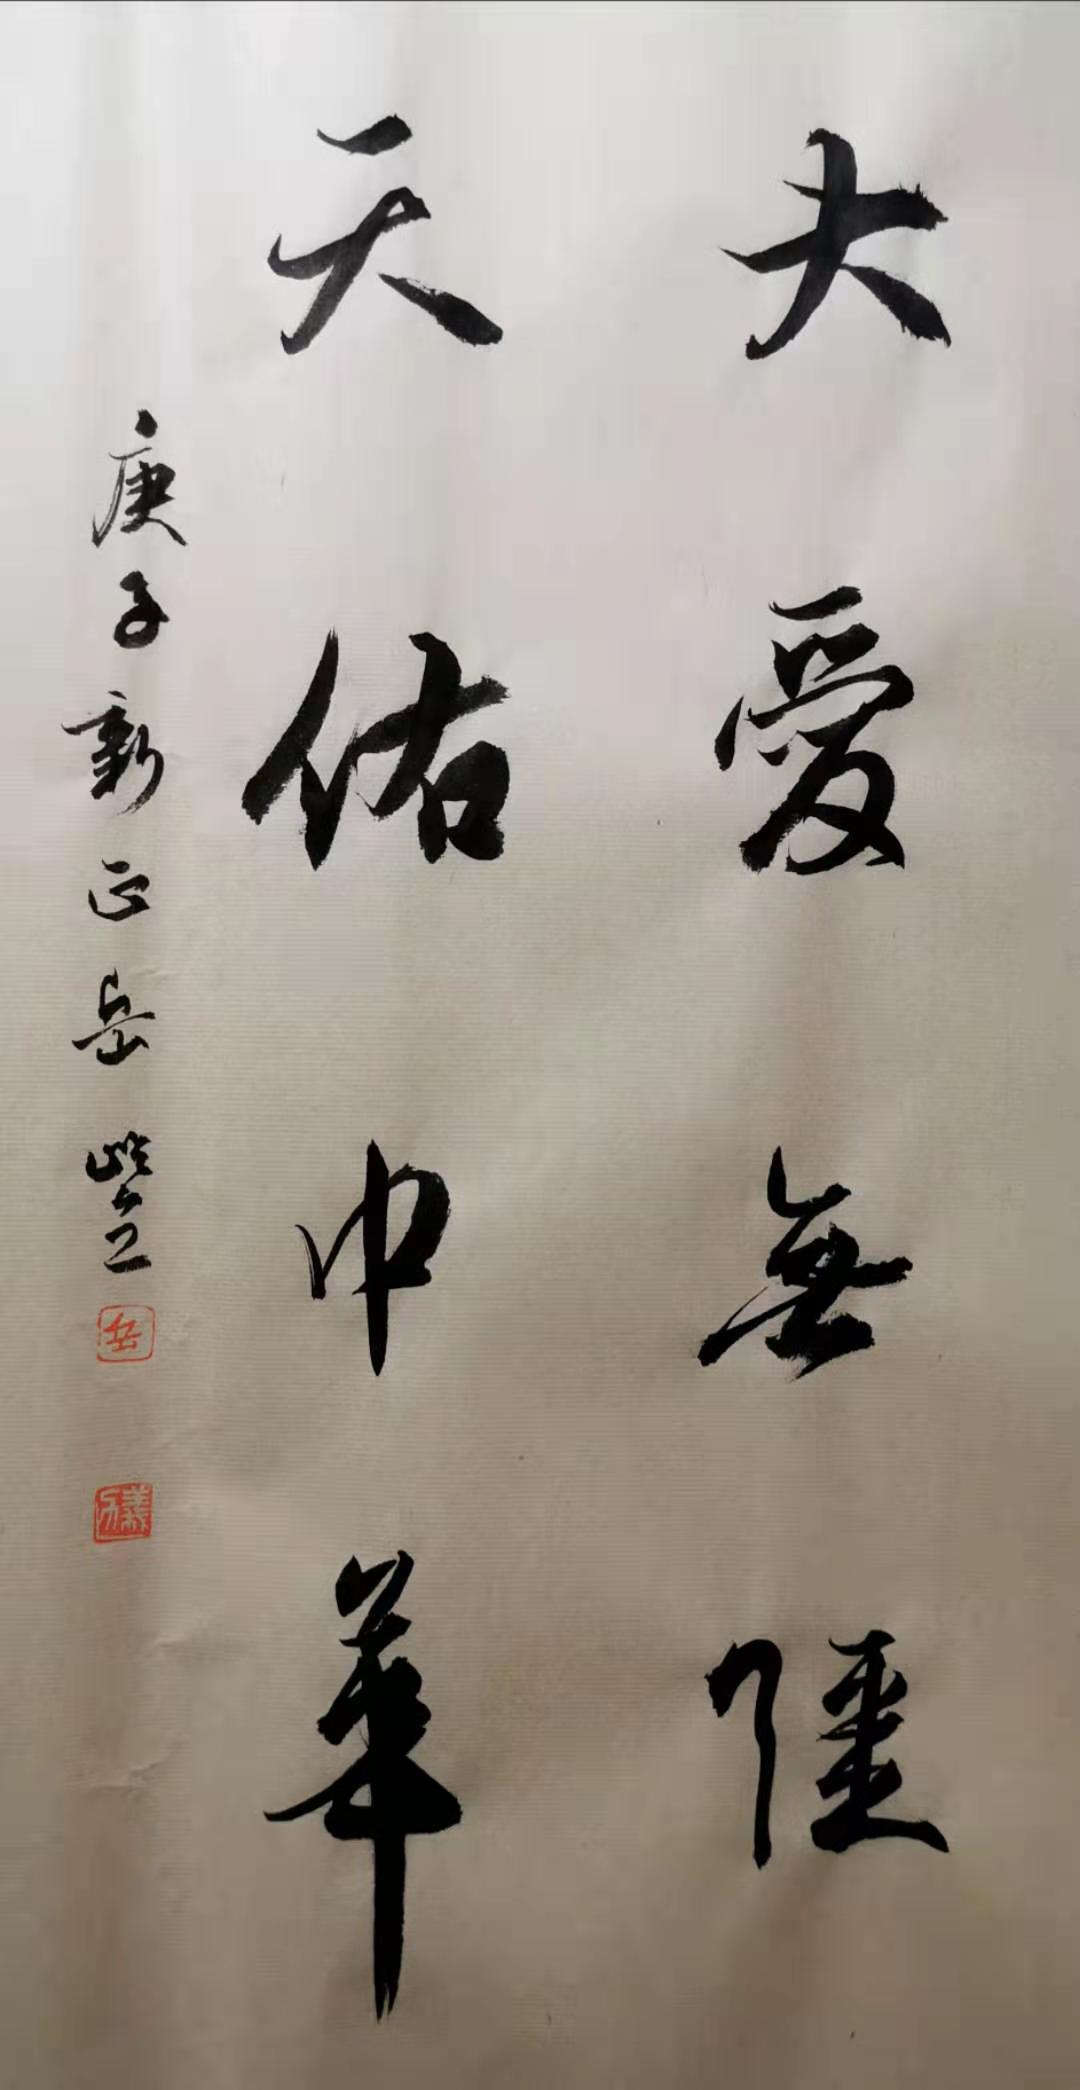 大愛無疆
天佑中華
庚子新正岳
岳